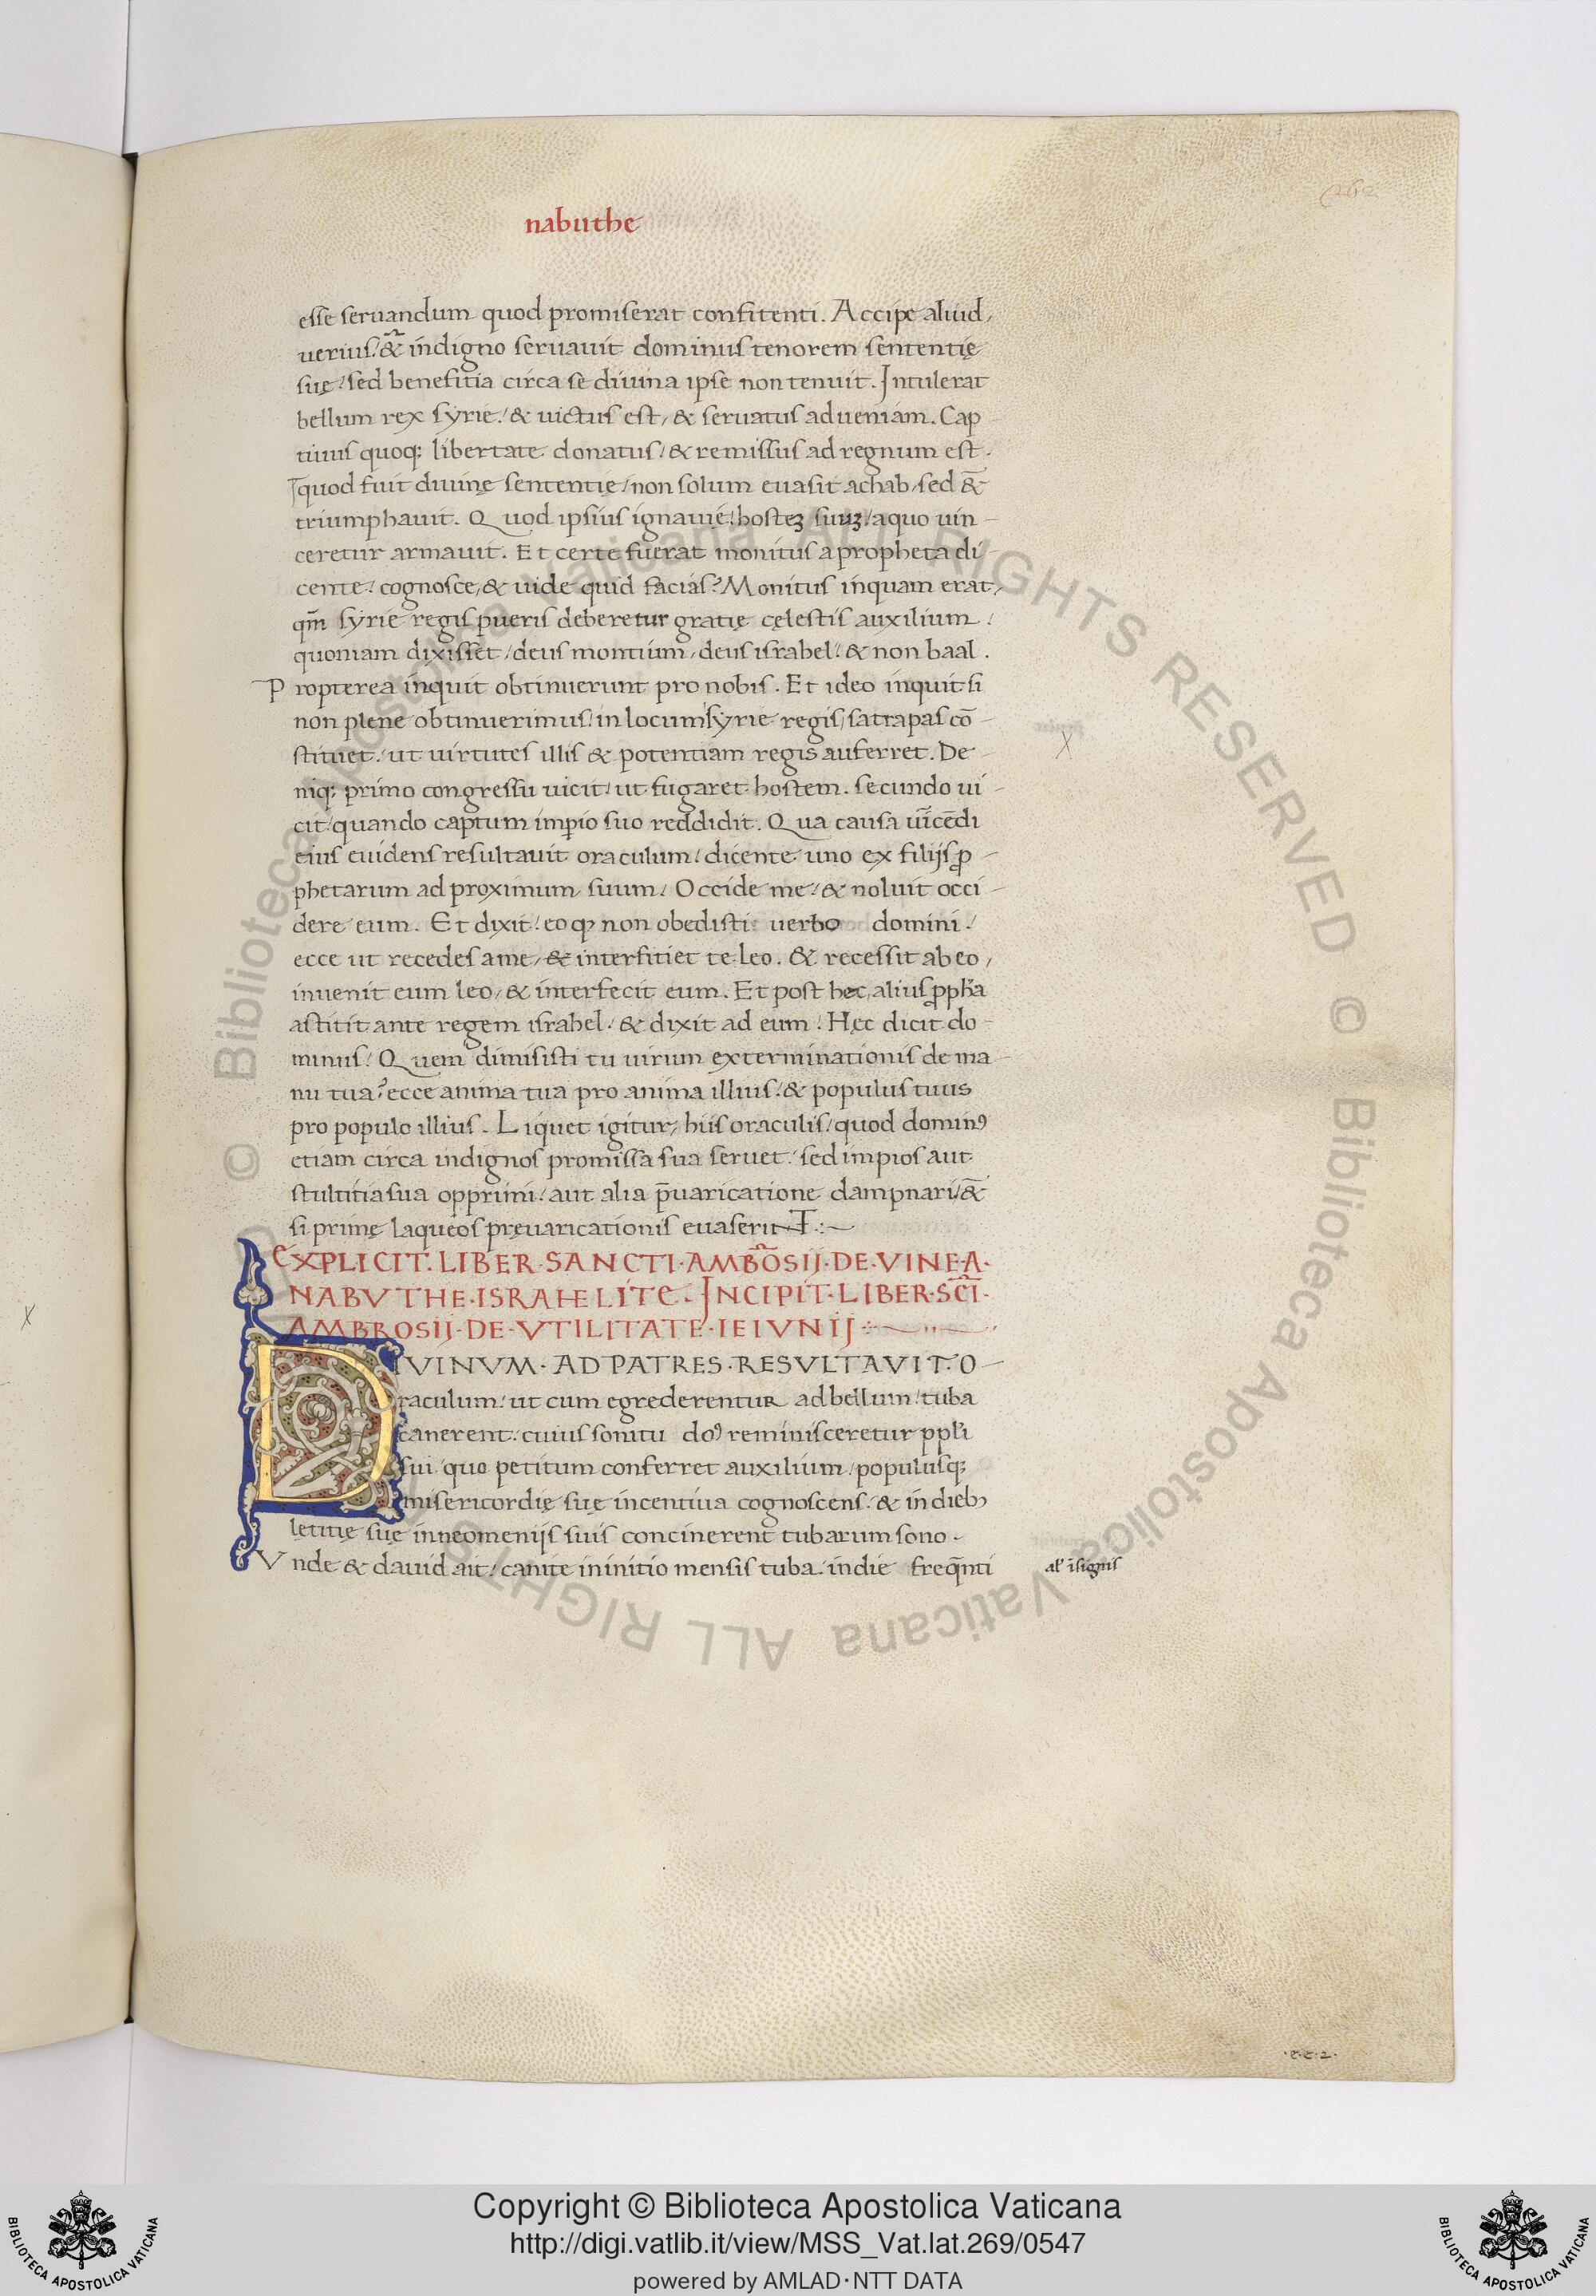 nabuthe
esse seruandum quod promiserat confitenti. Accipe aliud,
uerius/ & indigno seruauit dominus tenorem sententię
suę/ sed benefitia circa se diuina ipse non tenuit. Intulerat
bellum rex syrie/ & uictus est, & seruatus ad ueniam. Cap
tiuus quoq; libertate donatus/ & remissus ad regnum est.
quod fuit diuinę sententię/ non solum euasit achab, sed &̄
triumphauit. Quod ipsius ignauię/ hosteʒ suuʒ/ a quo uin-
ceretur armauit. Et certe fuerat monitus a propheta di
cente/ cognosce, & uide quid facias? Monitus inquam erat,
qm̄ syrie regis pueris deberetur gratię cęlestis auxilium/
quoniam dixisset/ deus montium, deus israhel/ & non baal.
Propterea inquit obtinuerunt pro nobis. Et ideo inquit si
non plene obtinuerimus/ in locum syrie regis, satrapas cō-
stituet/ ut uirtutes illis & potentiam regis auferret. De-
niq; primo congressu uicit/ ut fugaret hostem. secundo ui-
cit/ quando captum imꝑio suo reddidit. Qua causa uīcēdi
eius euidens resultauit oraculum/ dicente uno ex filijs ꝓ-
phetarum ad proximum suum/ Occide me/ & noluit occi-
dere eum. Et dixit/ eo ꝙ non obedisti uerbo domini/
ecce ut recedes a me, & interfitiet te leo. & recessit ab eo,
inuenit eum leo, & interfecit eum. Et post hec, alius ꝓpha
astitit ante regem israhel/ & dixit ad eum/ Hęc dicit do-
minus/ Quem dimisisti tu uirum exterminationis de ma-
nu tua? ecce anima tua pro anima illius/ & populus tuus
pro populo illius. Liquet igitur, hiis oraculis/ quod dominꝰ
etiam circa indignos promissa sua seruet/ sed impios aut
stultitia sua opprimi/ aut alia p̄uaricatione dampnari/ &̄
si primę laqueos pręuaricationis euaserint :~
EXPLICIT. LIBER. SANCTI. AMBRŌSIJ. DE. VINEA.
NABVTHE. ISRAHELITE. INCIPIT. LIBER. SCĪ.
AMBROSIJ. DE. VTILITATE. IEIVNIJ
DIVINVM. AD PATRES. RESVLTAVIT. O-
raculum/ ut cum egrederentur ad bellum/ tuba
canerent/ cuius sonitu doꝰ reminisceretur ppl'i
sui quo petitum conferret auxilium/ populusq;
misericordię suę incentiua cognoscens/ & in dieb;
lętitię suę in neomenijs suis concinerent tubarum sono.
Vnde & dauid ait/ canite in initio mensis tuba/ in die freq̄nti
al' īsignis
.e.e.2.
Copyright © Biblioteca Apostolica Vaticana
http://digi.vatlib.it/view/MSS_Vat.lat.269/0547
powered by AMLAD·NTT DATA
BIBLIOTECA APOSTOLICA VATICANA
BIBLIOTECA APOSTOLICA VATICANA
© Biblioteca Apostolica Vaticana ALL RIGHTS RESERVED
© Biblioteca Apostolica Vaticana ALL RIGHT